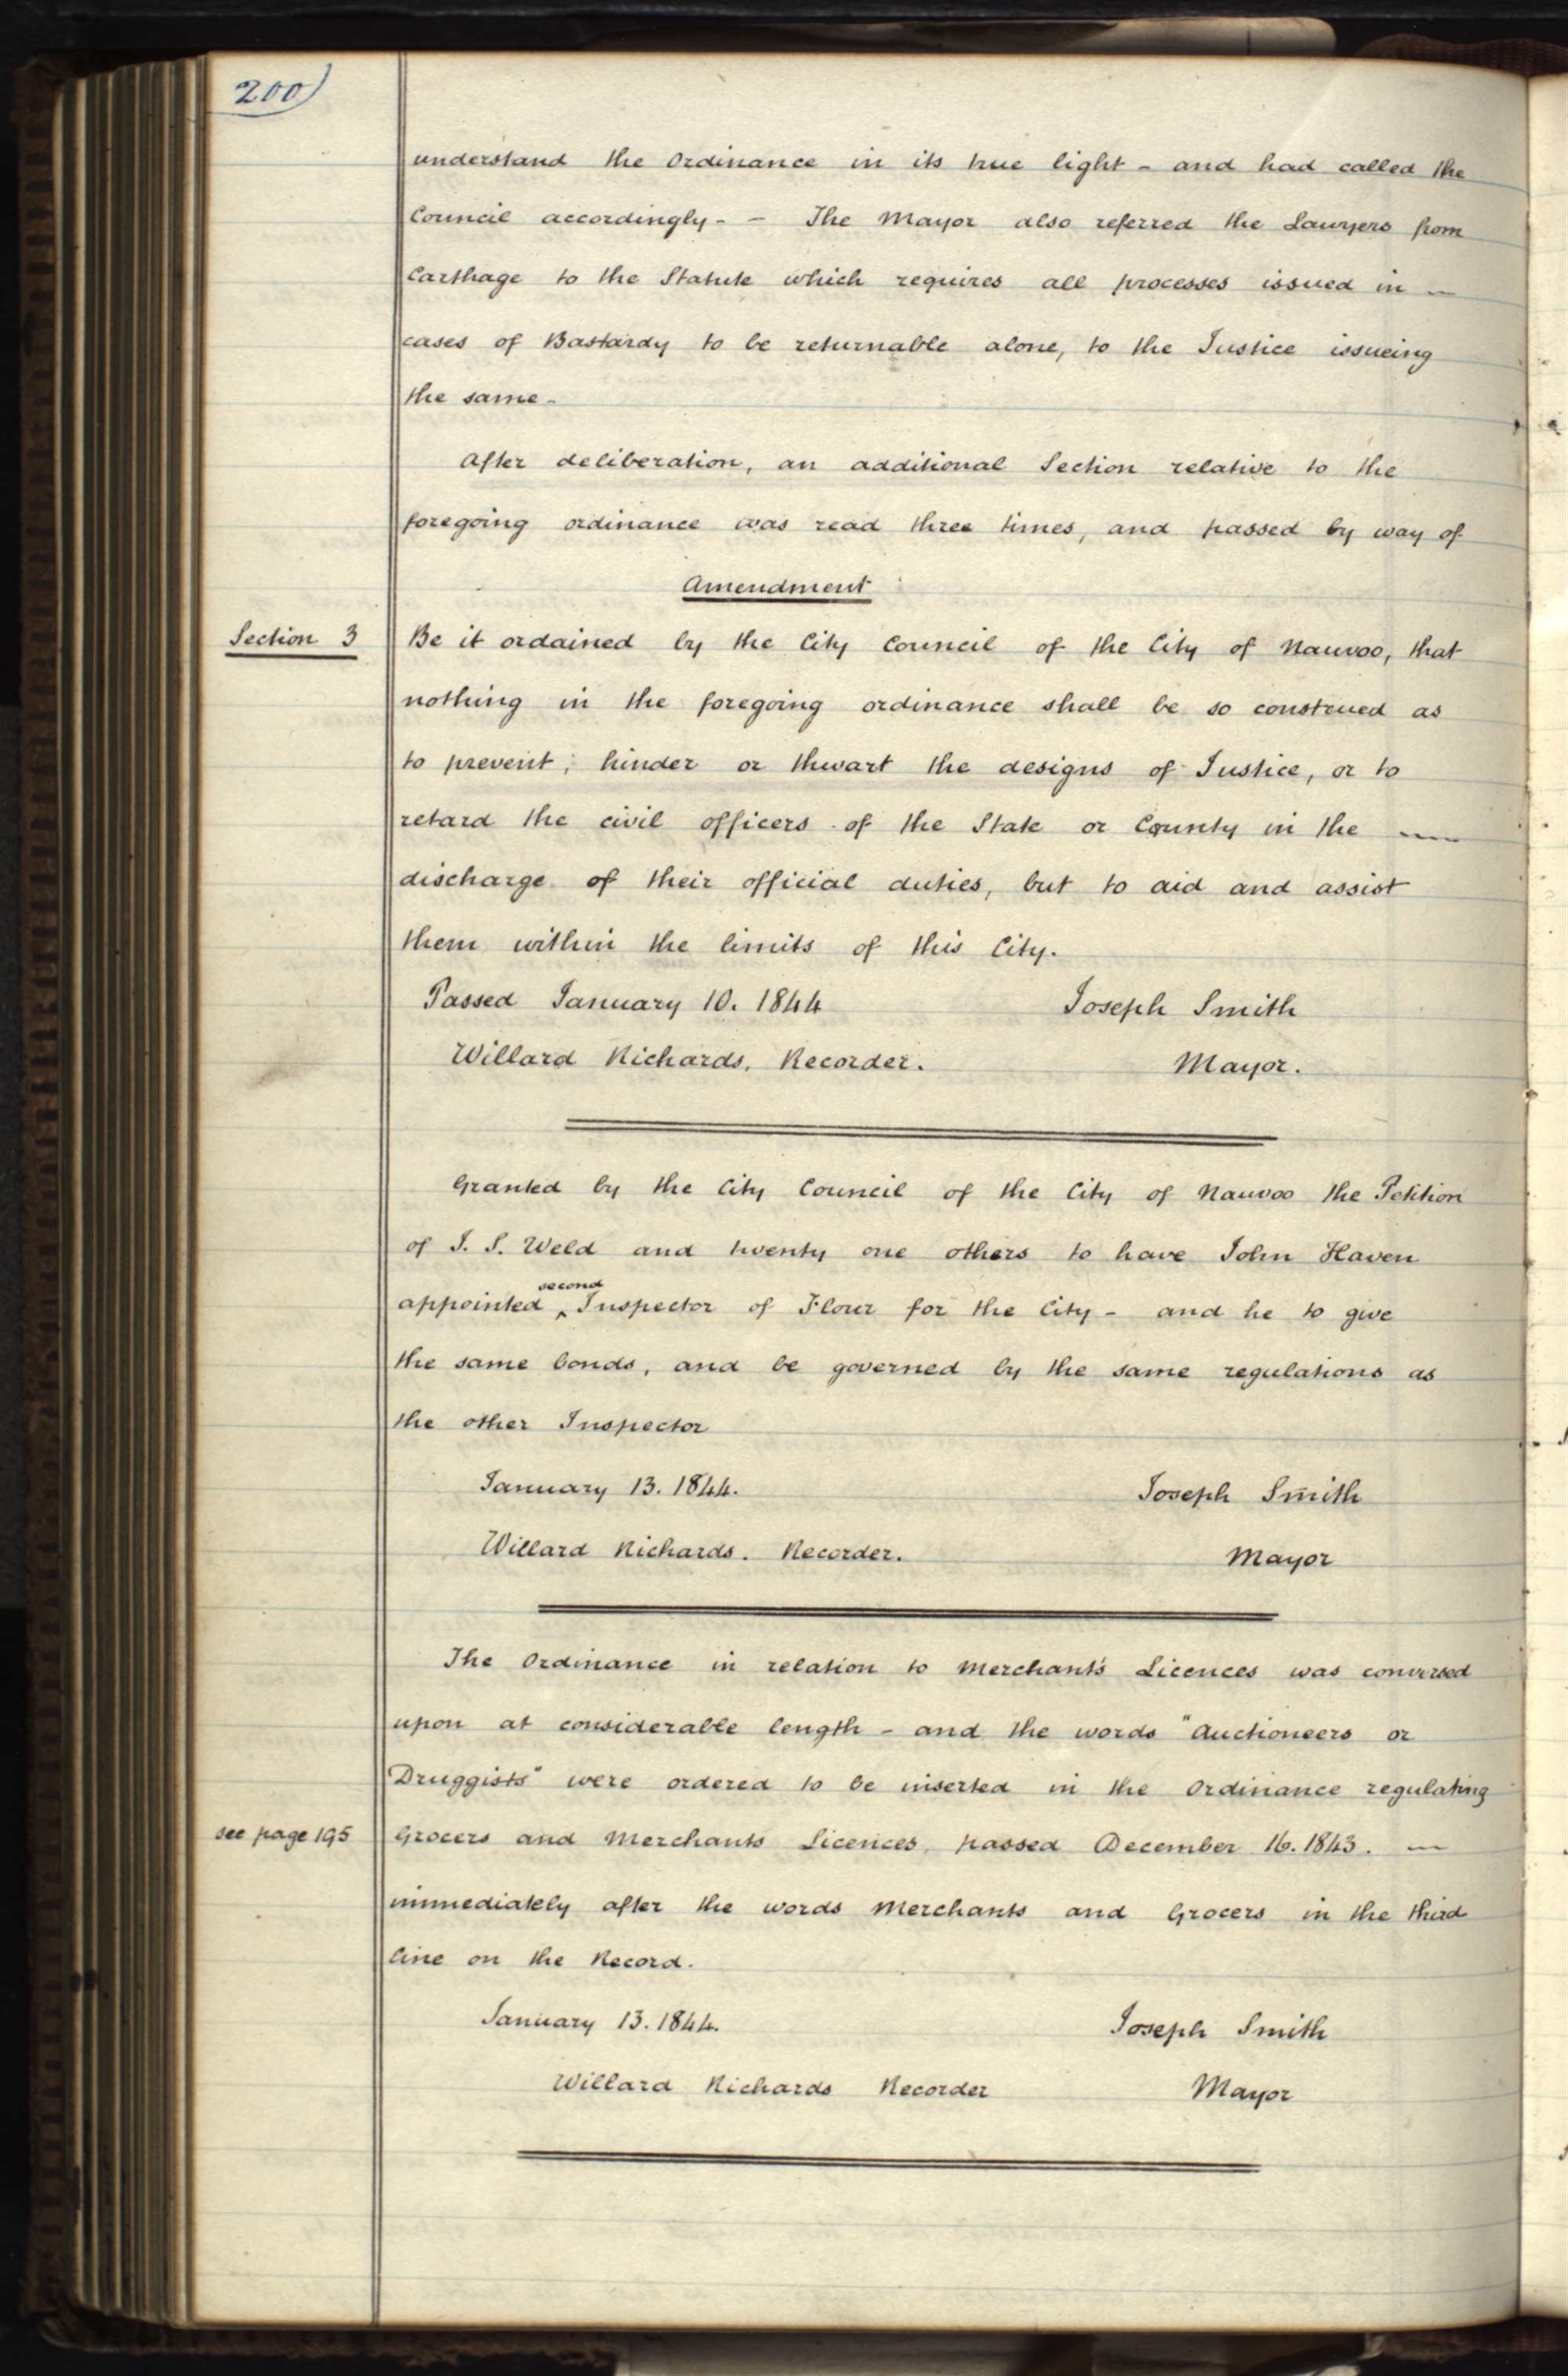 200)
understand the Ordinance in its true light - and had called the
Council accordingly - - The Mayor also referred the Lawyers from
Carthage to the Statute which requires all processes issued in —
cases of Bastardy to be returnable alone, to the Justice issueing
the same -
After deliberation, an additional Section relative to the
foregoing ordinance was read three times, and passed by way of
Amendment
Section 3 Be it ordained by the City Council of the City of Nauvoo, that
nothing in the foregoing ordinance shall be so construed as
to prevent, hinder or thwart the designs of Justice, or to
retard the civil officers of the State or County in the —
discharge of their official duties, but to aid and assist
them within the limits of this City.
Passed January 10. 1844 Joseph Smith
Willard Richards, Recorder. Mayor.
Granted by the City Council of the City of Nauvoo the Petition
of J. S. Weld and twenty one others to have John Haven
second
appointed ‸ Inspector of Flour for the City - and he to give
the same bonds, and be governed by the same regulations as
the other Inspector
January 13. 1844. Joseph Smith
Willard Richards. Recorder. Mayor
The Ordinance in relation to Merchant's Licences was conversed
upon at considerable length - and the words "Auctioneers or
Druggists" were ordered to be inserted in the Ordinance regulating
see page 195 Grocers and Merchants Licences, passed December 16. 1843. —
immediately after the words Merchants and Grocers in the third
line on the Record.
January 13. 1844. Joseph Smith
Willard Richards Recorder Mayor